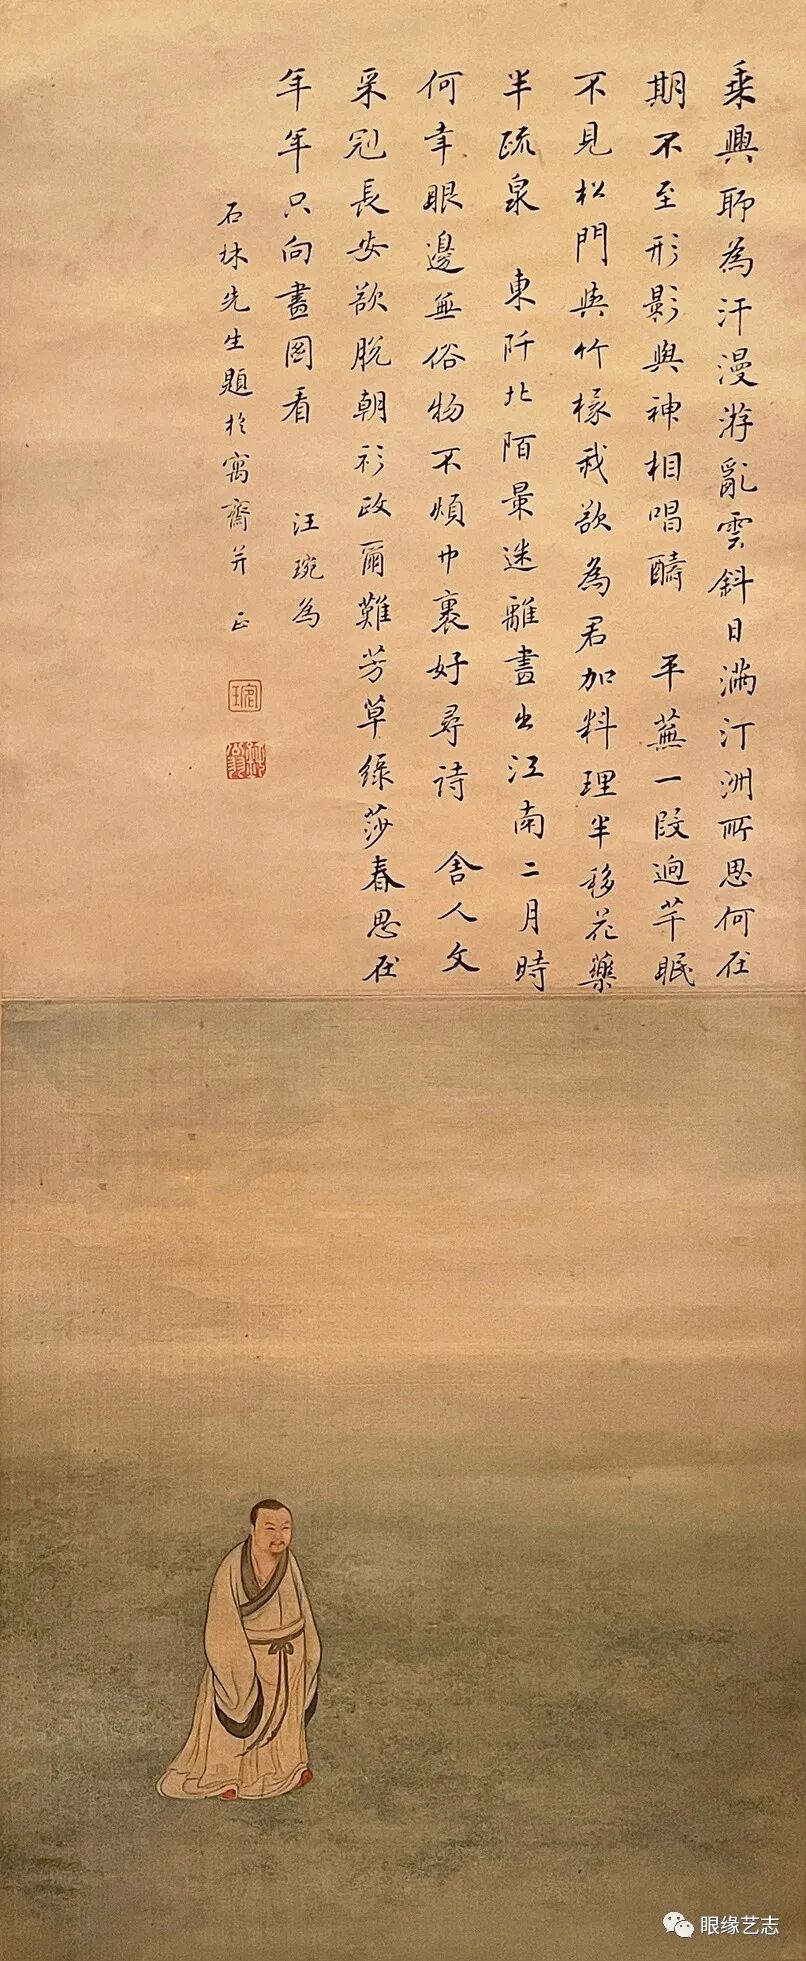 乘興聊為汗漫游亂雲斜日滿汀洲所思何在
期不至形影與神相唱醻 平蕪一段迥芊眠
不見松門與竹椽我欲為君加料理半移花藥
半疏泉 東阡北陌景迷離畫出江南二月時
何幸眼邊無俗物不煩巾裹好尋詩 舍人文
采冠長安欲脫朝衫政爾難芳草綠莎春思在
年年只向畫圖看 汪琬為
石林先生題於寓齋并 正
眼缘艺志